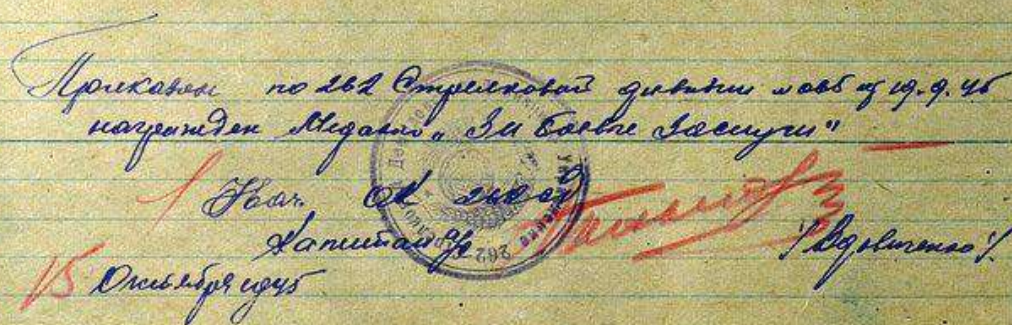 Приказом по 262 Стрелковой дивизии от 19.9.45
награжден Медалью „За боевые Заслуги"
Нач. 262 сд
Капитан а/с /Вдовиченко/.
15 Октября 1945